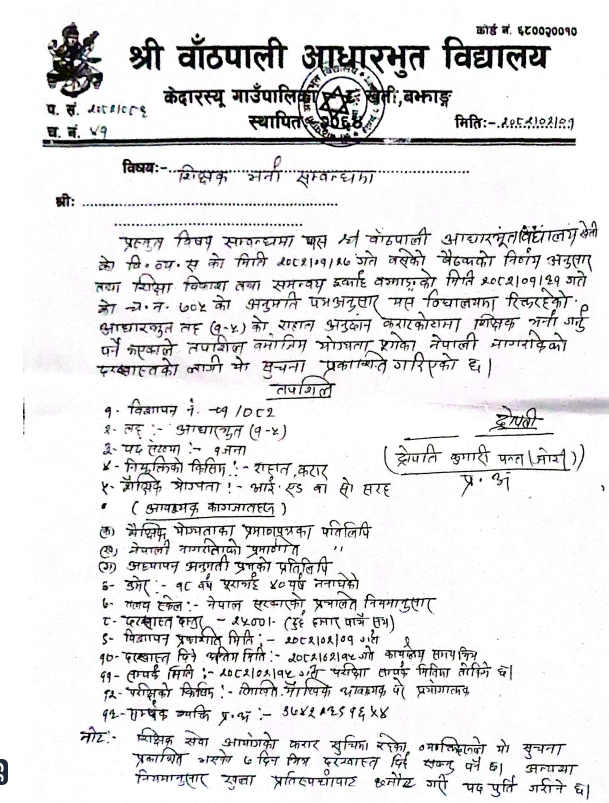 कोर्ड नं. ६८००२००१०
श्री वाँठपाली आधारभुत विद्यालय
केदारस्यू गाउँपालिका खेती, बझाङ्ग
स्थापित २०६४
प. सं. २०८१/०८२
च. नं. ४१
मिति:- २०८२/०२/०१
विषय:- शिक्षक भर्ना सम्वन्धमा
श्री:
प्रस्तुत विषय सम्वन्धमा यस श्री वाँठपाली आधारभूत विद्यालय खेती
को वि.व्य.स को मिति २०८२/०१/२७ गते वसेको बैठकको निर्णय अनुसार
तथा शिक्षा विकास तथा समन्वय इकाई बझाङ्गको मिति २०८२/०१/३१ गते
को च.न. ७०५ को अनुमति पत्रअनुसार यस विद्यालयमा रिक्त रहेको
आधारभूत तह (१-५) को राहात अनुदान करारकोटामा शिक्षक भर्ना गर्नु
पर्ने भएकाले तपाशिल वमोजिम योग्यता पुगेका नेपाली नागरिकको
दरखास्तको लागी यो सुचना प्रकाशित गरिएको छ।
तपशिल
१- विज्ञापन नं. -०१/०८२
२- तह :- आधारभूत (१-५)
३- पद संख्या :- १ जना
४- नियुक्तिको किसिम :- राहात, करार
५- शैक्षिक योग्यता :- आई.एड वा सो सरह
द्रोपती
(द्रोपति कुमारी पन्त (जोशी))
प्र.अ
(आवश्यक कागजातहरु)
(क) शैक्षिक योग्यताका प्रमाणपत्रका प्रतिलिपि
(ख) नेपाली नागरिताको प्रमाणित "
(ग) अध्यापन अनुमती पत्रको प्रतिलिपि
६- उमेर :- १८ वर्ष पूरा भई ४० वर्ष ननाघेको
७- तलव स्केल :- नेपाल सरकारको प्रचलित नियमानुसार
८- दरखास्त दस्तुर -
९- विज्ञापन प्रकाशीत मिति :- २०८२/०२/०१ गते
१०- दरखास्त दिने अन्तिम मिति :- २०८२/०२/१५ गते कार्यालय समयभित्र
११- मिति :- २०८२/०२/१५ गते परिक्षा सम्पर्क मितिमा तोकिने छ।
१२- परिक्षाको किसिम :- लिखित, मौखिक आवश्यक परे प्रयोगात्मक
१३- सम्पर्क व्यक्ति प्र.अ :-
नोट:- शिक्षक सेवा आयोगको करार सुचिमा रहेका व्यक्तिहरुले यो सुचना
प्रकाशित भएको ७ दिन भित्र दरखास्त दिई सक्नु पर्ने छ। अन्यथा
नियमानुसार खुल्ला प्रतिस्पर्धाबाट छनौट गरी पद पुर्ति गरीने छ।